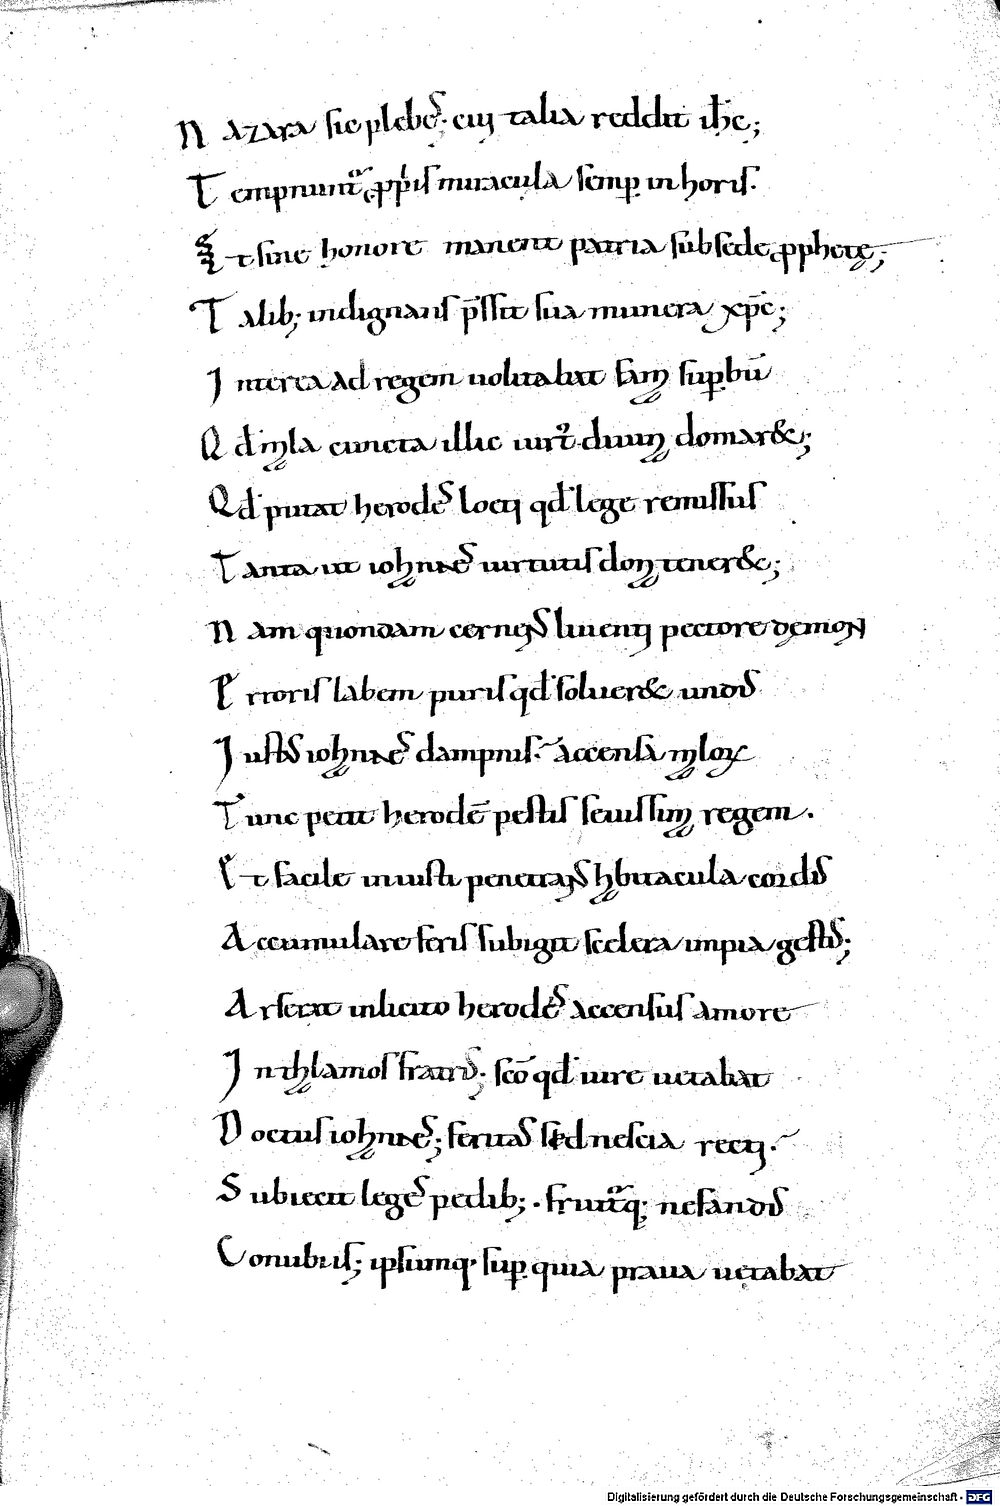 N azara sic plebeſ. cuı talia reddit ih̄c;
T empnunt᷑ ꝓpriis miracula semp̱ in horis.
Et sine honore manent patria sub sede ꝓphetę;
T alib; indignans p̄ssit sua munera xp̄c;
I nterea ad regem uolitabat fam sup̱bū
Q đ mla cuncta illic uirt᷑ diuin domar&;
Qđ putat herodes loc qđ lege remissus
T anta ut iohnnes uirtutis don tener&;
N am quondam cernens liuenti pectore demon
E rroris labem puris qđ solueret& undis
I ustis iohnnes dampnis. accensa mlor
T unc petit herodē pestis seuissim regem.
E t facile iniusti penetrans hbitacula cordis
A ccumulare feris subigit scelera impia gestis;
A rserat inlicito herodes accensus amore
I n thlamos fratris. scō qđ iure uetabat
D octus iohnnes; feritas sed nescia recti.
S ubiecit leges pedib;. fruit᷑q; nefandis
C onubiis; ipsumq; sup̱ quia praua uetabat
Digitalisierung gefördert durch die Deutsche Forschungsgemeinschaft - DFG